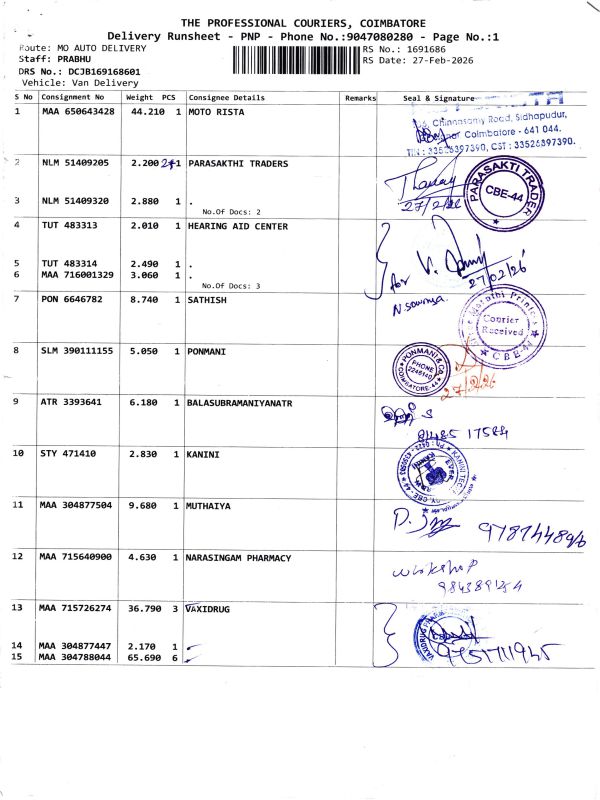 THE PROFESSIONAL COURIERS, COIMBATORE
Delivery Runsheet - PNP - Phone No.:9047080280 - Page No.:1
Route: MO AUTO DELIVERY
RS No.: 1691686
Staff: PRABHU
RS Date: 27-Feb-2026
DRS No.: DCJB169168601
Vehicle: Van Delivery
S No Consignment No Weight PCS Consignee Details Remarks Seal & Signature
1 MAA 650643428 44.210 1 MOTO RISTA
Chinnasamy Road, Sidhapudur,
Coimbatore - 641 044.
TIN : 33526397390, CST : 33526397390.
2 NLM 51409205 2.200 1 PARASAKTHI TRADERS
27/2/26
PARASAKTI TRADER
CBE-44
3 NLM 51409320 2.880 1 .
No.Of Docs: 2
4 TUT 483313 2.010 1 HEARING AID CENTER
5 TUT 483314 2.490 1 .
6 MAA 716001329 3.060 1 .
No.Of Docs: 3
for V.
27/02/26
7 PON 6646782 8.740 1 SATHISH
N. Sowmya.
Marathi Printers
Courier
Received
CBE-44
8 SLM 390111155 5.050 1 PONMANI
PONMANI & CO.
PHONE
2246140
COIMBATORE-44
27/2/26
9 ATR 3393641 6.180 1 BALASUBRAMANIYANATR
S
10 STY 471410 2.830 1 KANINI
KANINI TEC
11 MAA 304877504 9.680 1 MUTHAIYA
12 MAA 715640900 4.630 1 NARASINGAM PHARMACY
workshop
13 MAA 715726274 36.790 3 VAXIDRUG
14 MAA 304877447 2.170 1
15 MAA 304788044 65.690 6
VAXIDRUG
9751711945